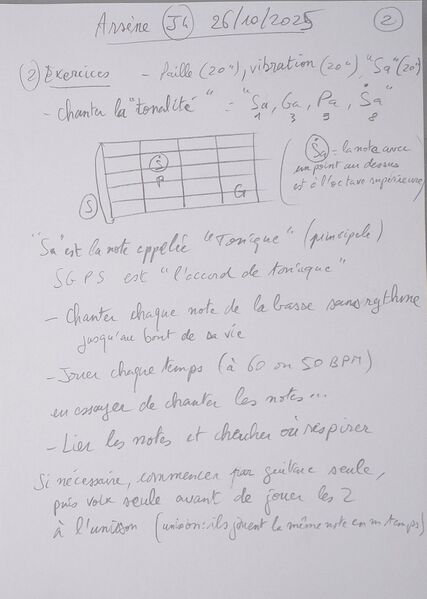 Arsène J4 26/10/2025 2
② Exercices - Paille (20"), vibration (20") "Sa" (20")
- Chanter la "tonalité" = "Sa, Ga, Pa, Ṡa"
1 3 5 8
Ṡ
P
G
S
(Ṡa = la note avec
un point au dessus
est à l'octave supérieure)
"Sa" est la note appelée "Tonique" (principale)
SGPṠ est "l'accord de tonique"
- Chanter chaque note de la basse sans rythme
jusqu'au bout de sa vie
- Jouer chaque temps (à 60 ou 50 BPM)
en essayer de chanter les notes...
- Lier les notes et chercher où respirer
Si nécessaire, commencer par guitare seule,
puis voix seule avant de jouer les 2
à l'unisson (unisson: ils jouent la même note en m̂ temps)